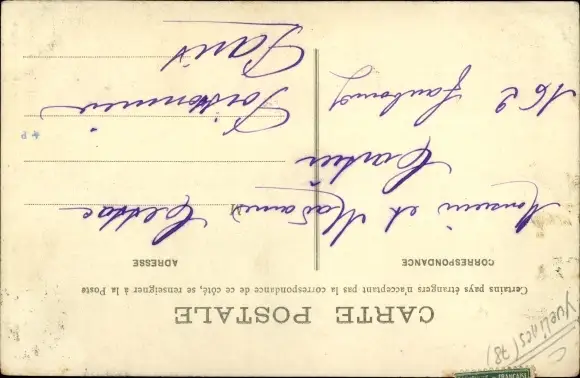 CARTE POSTALE
Certains pays étrangers n'acceptant pas la correspondance de ce côté, se renseigner à la Poste
CORRESPONDANCE
ADRESSE
Monsieur et Madame
162 Faubourg
Poissonnière
Paris
Yvelines (78)